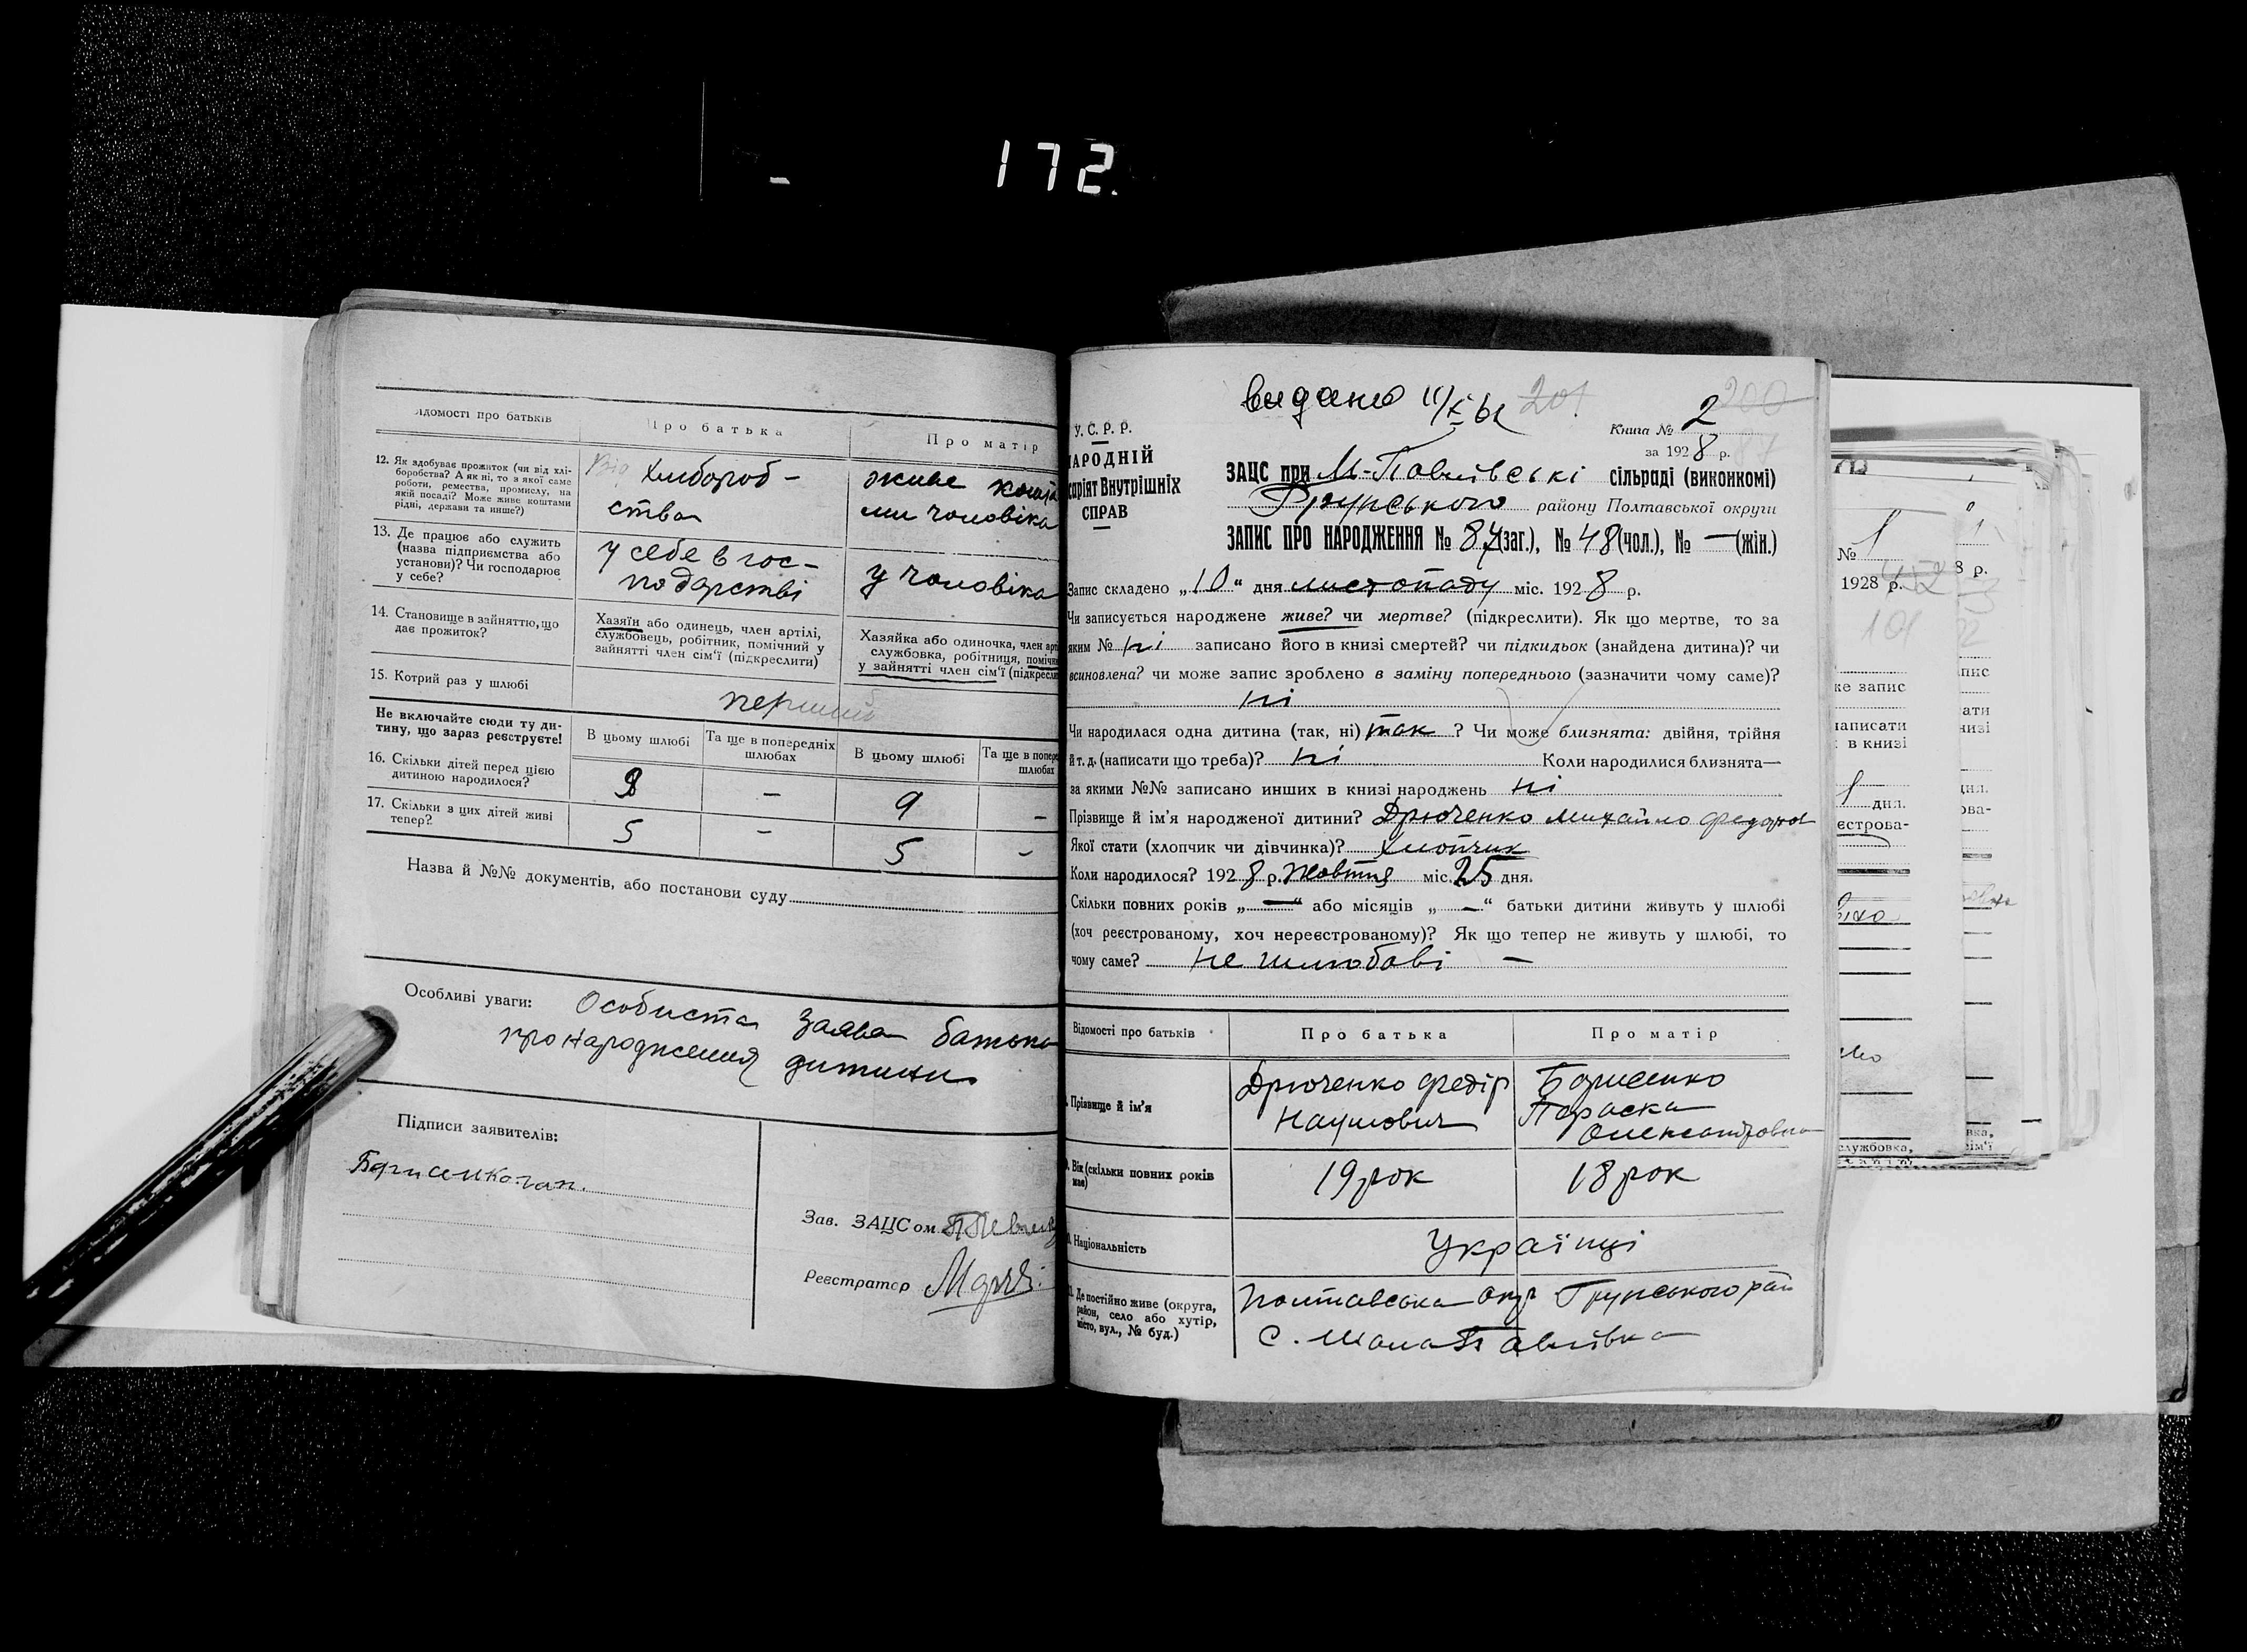 172.
Відомості про батьків
Про батька
Про матір
12. Як здобуває прожиток (чи від хлі-
боробства? А як ні, то з якої саме
роботи, ремества, промислу, на
якій посаді? Може живе коштами
рідні, держави та инше?)
Від хлібороб-
ства
живе кошта
ми чоловіка
13. Де працює або служить
(назва підприємства або
установи)? Чи господарює
у себе?
у себе в гос-
подарстві
у чоловіка
14. Становище в зайняттю, що
дає прожиток?
Хазяїн або одинець, член артілі,
службовець, робітник, помічний у
зайнятті член сім'ї (підкреслити)
Хазяйка або одиночка, член арт
службовка, робітниця, помічн
у зайнятті член сім'ї (підкресли
15. Котрий раз у шлюбі
перший
Не включайте сюди ту ди-
тину, що зараз реєструєте!
В цьому шлюбі
Та ще в попередніх
шлюбах
В цьому шлюбі
Та ще в попере
шлюбах
16. Скільки дітей перед цією
дитиною народилося?
9 — 9 —
17. Скільки з цих дітей живі
тепер?
5 — 5 —
Назва й №№ документів, або постанови суду
Особливі уваги: Особиста заява батька
про народження дитини
Підписи заявителів:
Зав. ЗАЦСом
Реєстратор
видано 11/X 61 201 200
У. С. Р. Р.
НАРОДНІЙ
саріят Внутрішніх
СПРАВ
Книга № 2
за 1928 р. 87
ЗАЦС при М-Павлівські сільраді (виконкомі)
Грунського району Полтавської округи
ЗАПИС ПРО НАРОДЖЕННЯ № 87 (заг.), № 48 (чол.), № — (жін.)
Запис складено „10" дня листопаду міс. 1928 р.
Чи записується народжене живе? чи мертве? (підкреслити). Як що мертве, то за
яким № ні записано його в книзі смертей? чи підкидьок (знайдена дитина)? чи
всиновлена? чи може запис зроблено в заміну попереднього (зазначити чому саме)?
ні
Чи народилася одна дитина (так, ні) так ? Чи може близнята: двійня, трійня
й т. д. (написати що треба)? ні Коли народилися близнята—
за якими №№ записано инших в книзі народжень ні
Прізвище й ім'я народженої дитини? Дрюченко Михайло Федоров
Якої стати (хлопчик чи дівчинка)? хлопчик
Коли народилося? 1928 р. Жовтня міс. 25 дня.
Скільки повних років „—" або місяців „—" батьки дитини живуть у шлюбі
(хоч реєстрованому, хоч нереєстрованому)? Як що тепер не живуть у шлюбі, то
чому саме? не шлюбові —
Відомості про батьків
Про батька
Про матір
Прізвище й ім'я
Дрюченко Федір
Наумович
Борисенко
Параска
Олександровна
Вік (скільки повних років
має)
19 рок
18 рок
Національність
Українці
Де постійно живе (округа,
район, село або хутір,
місто, вул., № буд.)
Полтавська окр Грунського рай
с. Мала Павлівка
№ 1
1928 р.
8 р.
101
же запис
написати
в книзі
дня.
єстрова-
службовка,